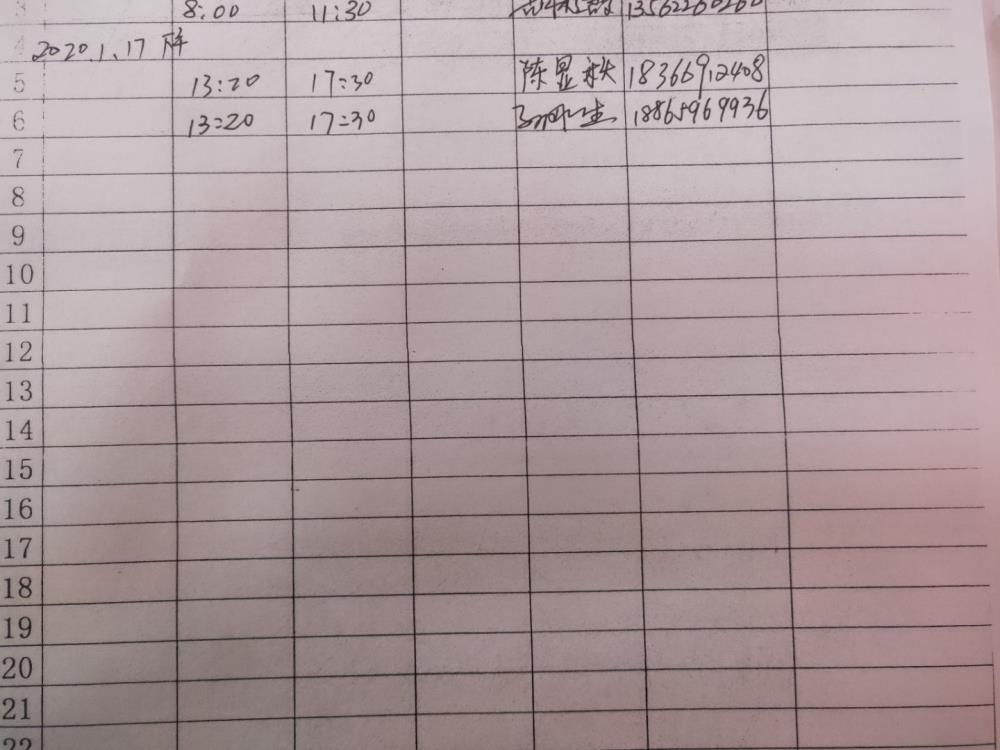 3 8:00 11:30
4 2020.1.17
5 13:20 17:30 陈显 18366912408
6 13:20 17:30 18865969936
7
8
9
10
11
12
13
14
15
16
17
18
19
20
21
22